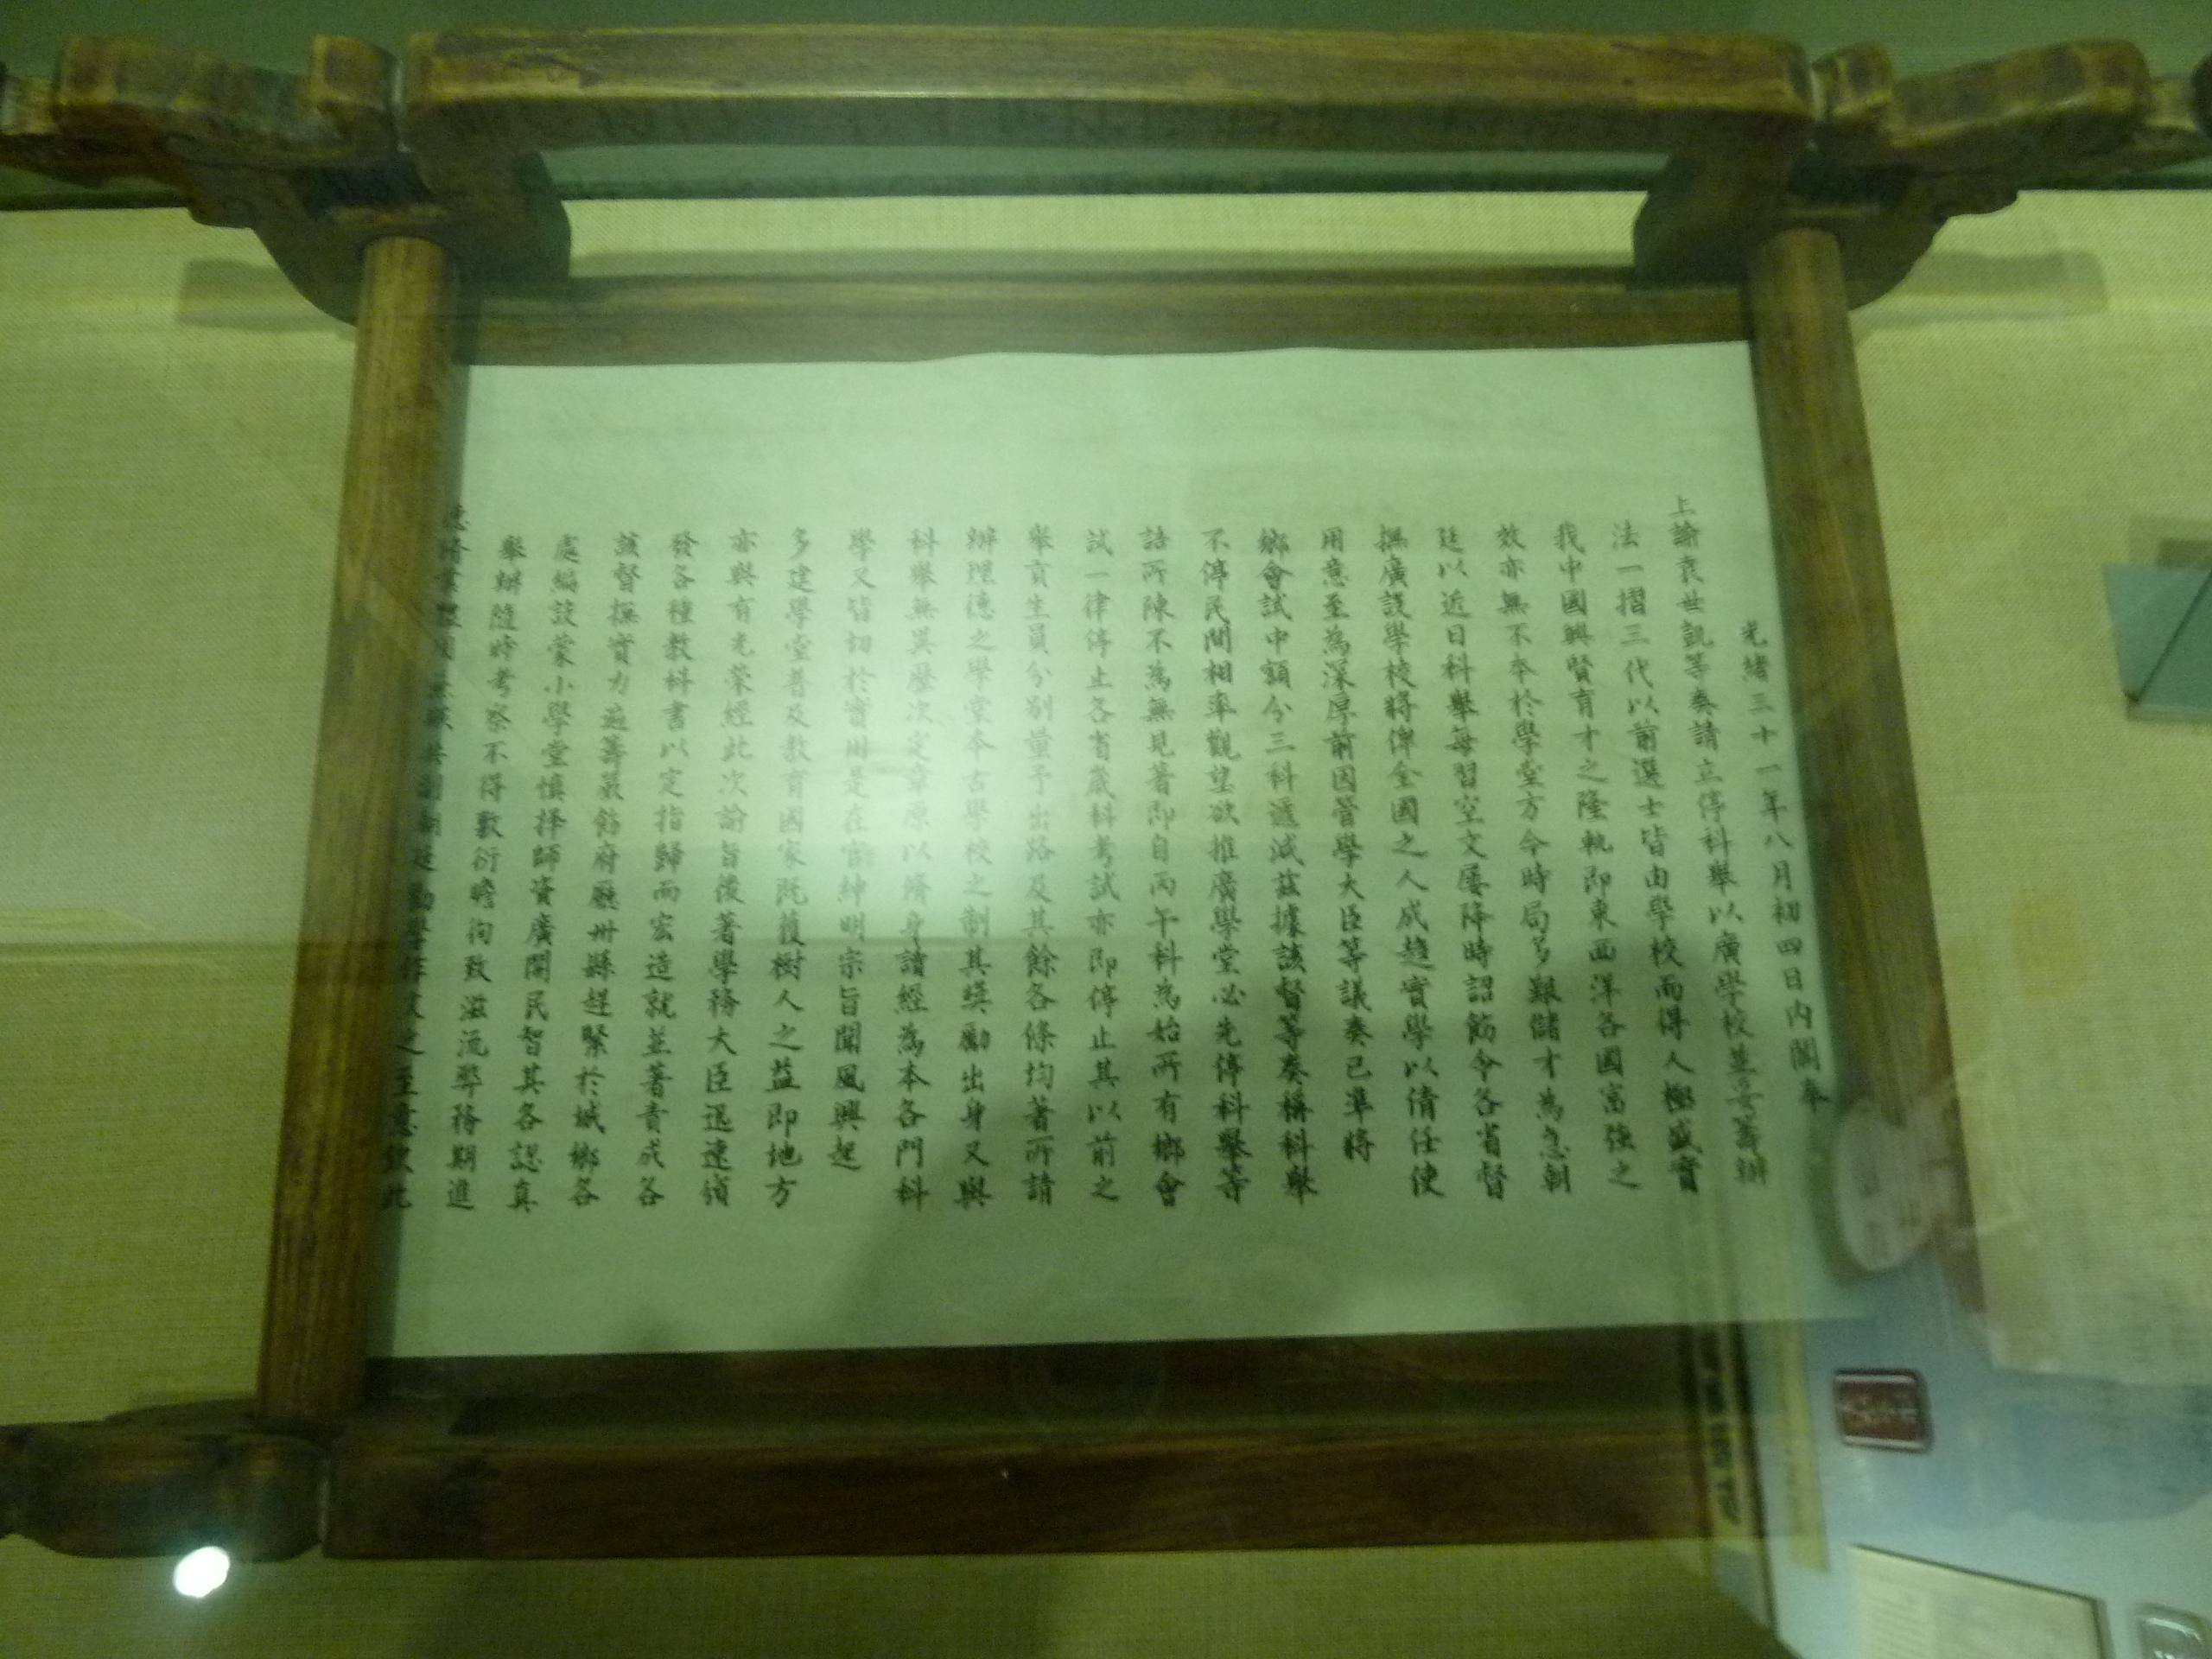 光緒三十一年八月初四日內閣奉
上諭袁世凱等奏請立停科舉以廣學校並妥籌辦
法一摺三代以前選士皆由學校而得人極盛實
我中國興賢育才之隆軌即東西洋各國富強之
效亦無不本於學堂方今時局多艱儲才為急朝
廷以近日科舉每習空文屢降時詔飭令各省督
撫廣設學校將俾全國之人咸趨實學以備任使
用意至為深厚前因管學大臣等議奏已準將
鄉會試中額分三科遞減茲據該督等奏稱科舉
不停民間相率觀望欲推廣學堂必先停科舉等
語所陳不為無見著即自丙午科為始所有鄉會
試一律停止各省歲科考試亦即停止其以前之
舉貢生員分別量予出路及其餘各條均著所請
辦理德之學堂本古學校之制其獎勵出身又與
科舉無異歷次定章原以修身讀經為本各門科
學又皆切於實用是在官紳明宗旨聞風興起
多建學堂普及教育國家既獲樹人之益即地方
亦與有光榮經此次諭旨後著學務大臣迅速頒
發各種教科書以定指歸而宏造就並著責成各
該督撫實力通籌嚴飭府廳州縣趕緊於城鄉各
處編設蒙小學堂慎擇師資廣開民智其各認真
舉辦隨時考察不得敷衍瞻徇致滋流弊務期進
德修業體用兼賅共副朝廷勸學作人之至意欽此